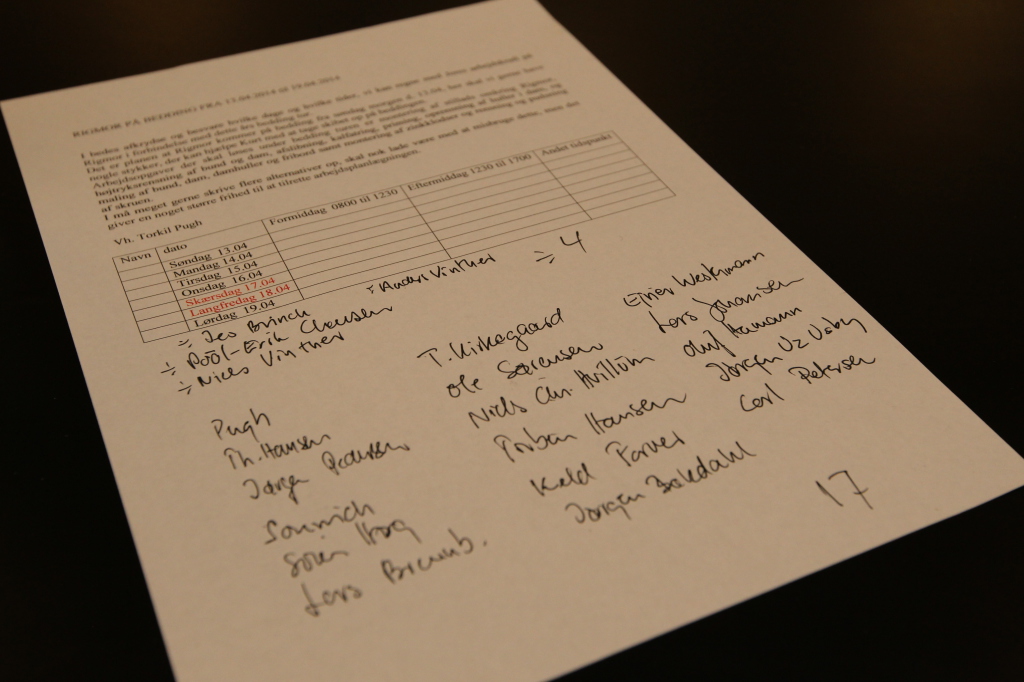 RIGMOR PÅ BEDDING FRA 13.04.2014 til 19.04.2014
I bedes afkrydse og besvare hvilke dage og hvilke tider, vi kan regne med jeres arbejdskraft på
Rigmor i forbindelse med dette års bedding tur.
Det er planen at Rigmor kommer på bedding fra søndag morgen d. 13.04, her skal vi gerne have
nogle stykker, der kan hjælpe Kurt med at tage skibet op på beddingen.
Arbejdsopgaver der skal løses under bedding turen er montering af stillads omkring Rigmor,
højtryksrensning af bund og dam, afslibning, kalfatring, pensning, opensning af huller i dam, og
maling af bund, dam, damhuller og fribord samt montering af zinkklodser og rensning og pudsning
af skruen.
I må meget gerne skrive flere alternativer op, skal nok lade være med at misbruge dette, men det
giver en noget større frihed til at tilrette arbejdsplanlægningen.
Vh. Torkil Pugh
Navn dato Formiddag 0800 til 1230 Eftermiddag 1230 til 1700 Andet tidspunkt
Søndag 13.04
Mandag 14.04
Tirsdag 15.04
Onsdag 16.04
Skærsdag 17.04
Langfredag 18.04
Lørdag 19.04
÷ Jes Brinch
÷ Poól-Erik Clausen
÷ Niels Vinther
÷ Anders Vinther
÷ 4
Pugh
Th. Hansen
Jørgen Pedersen
Sonnich
Søren Hoeg
Lars Bramb.
T. Kirkegaard
Ole Sørensen
Niels Chr. Hvillum
Torben Hansen
Keld Farver
Jørgen Bakdahl
Ejner Westermann
Lars Johansen
Oluf Hamann
Jørgen Uz Usby
Carl Petersen
17